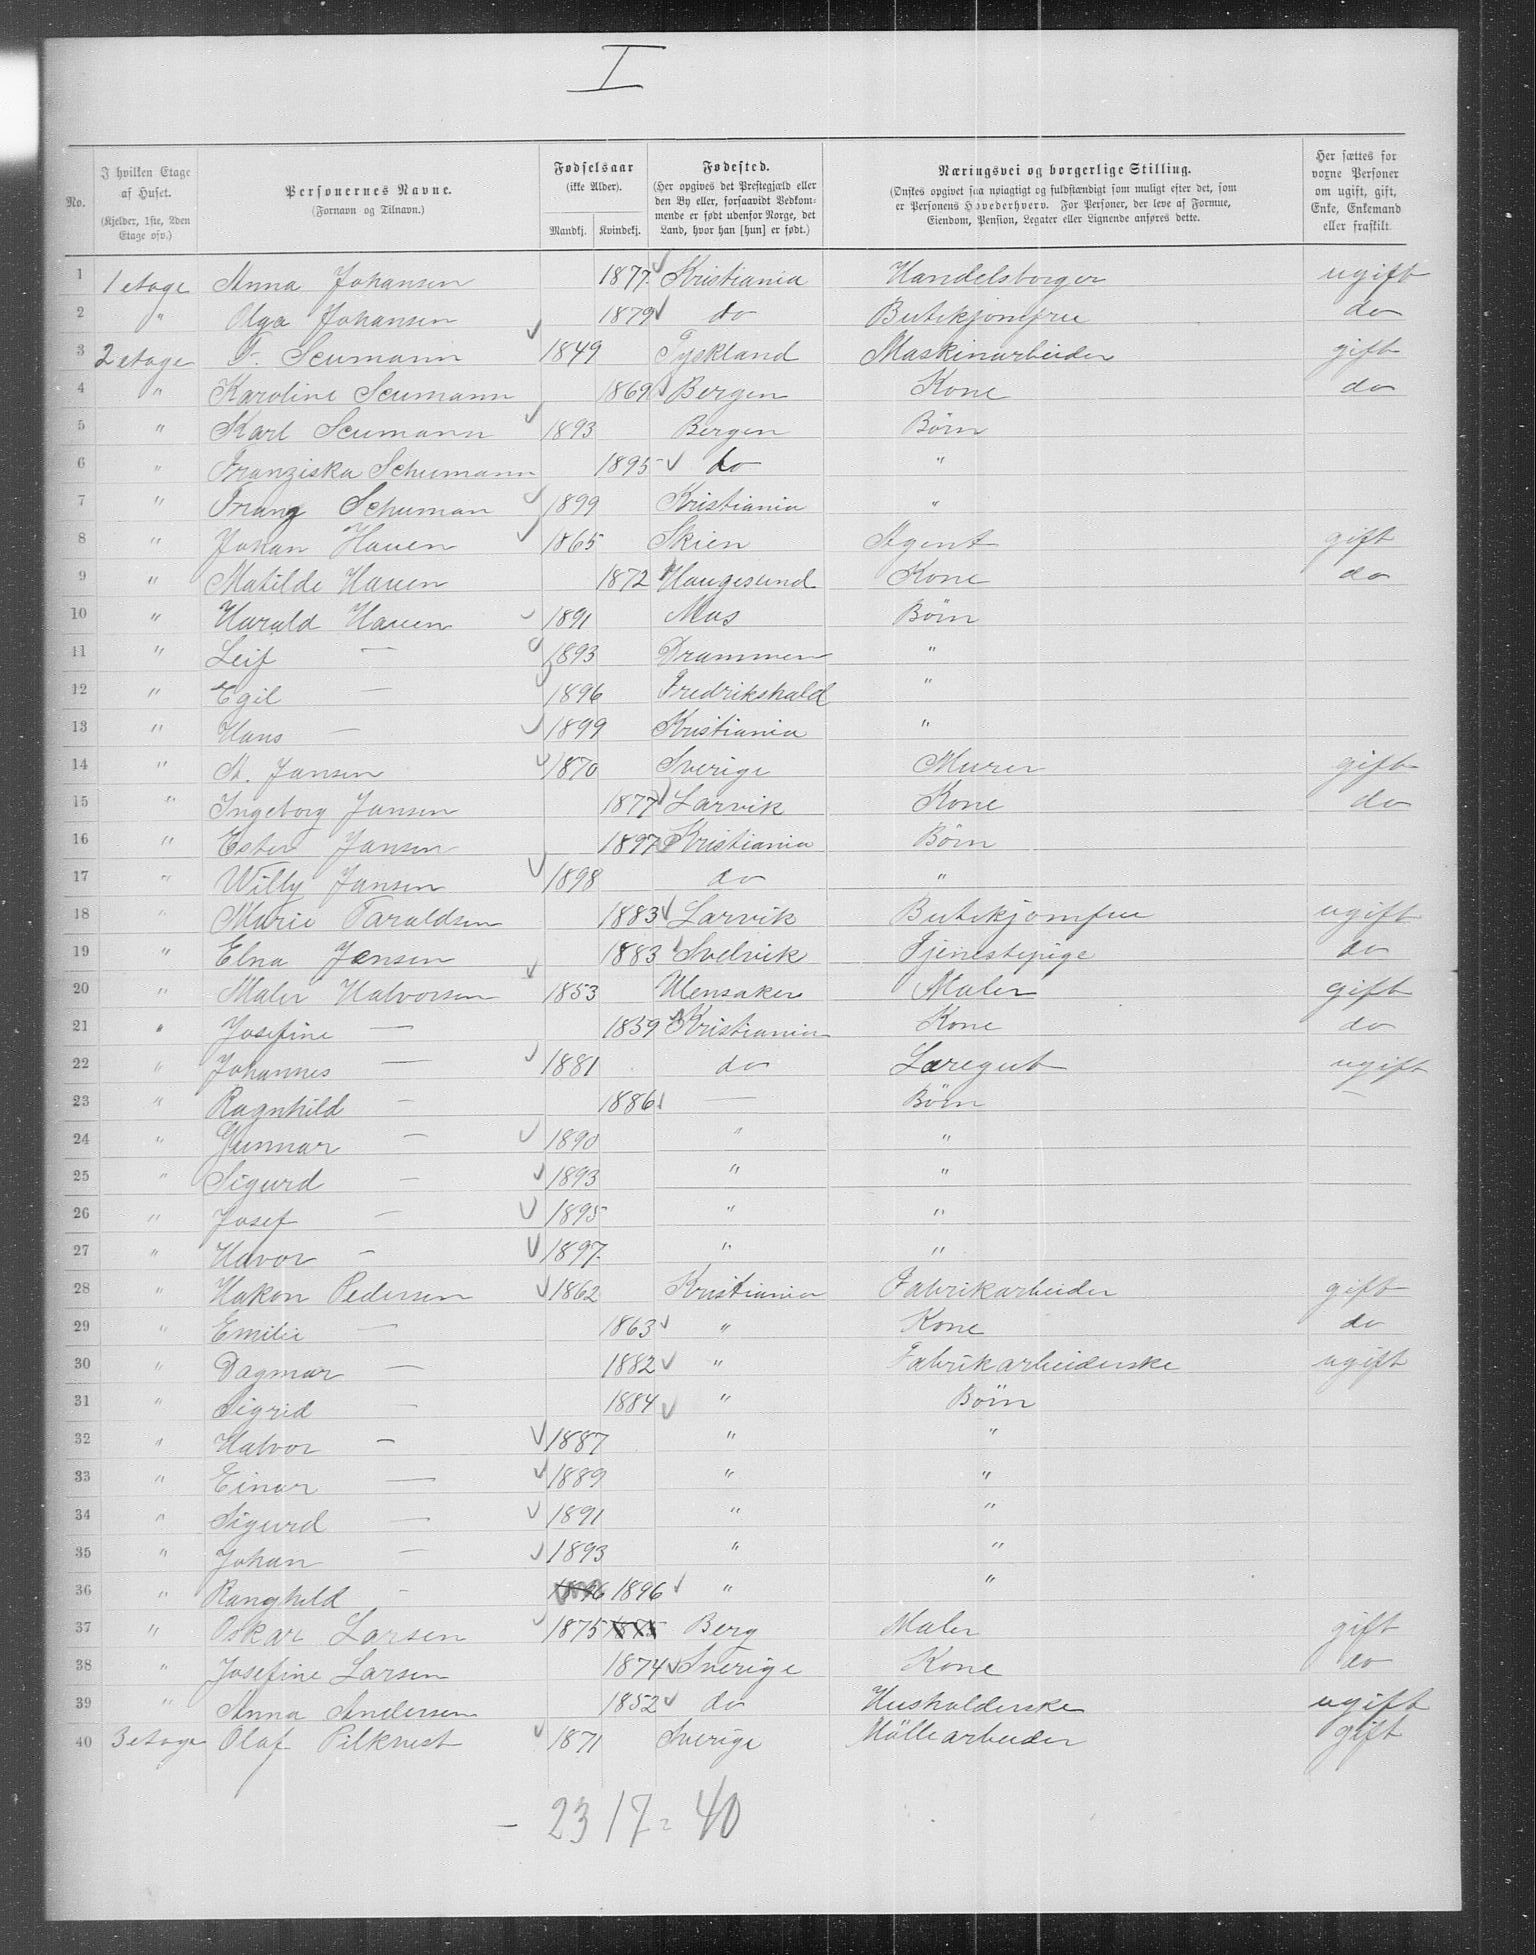 I
No.
I hvilken Etage af Huset. (Kjelder, 1ste, 2den Etage osv.)
Personernes Navne. (Fornavn og Tilnavn.)
Fødselsaar (ikke Alder). Mandkj. Kvindekj.
Fødested. (Her opgives det Prestegjæld eller den By eller, forsaavidt Vedkommende er født udenfor Norge, det Land, hvor han [hun] er født.)
Næringsvei og borgerlige Stilling. (Ønskes opgivet saa nøiagtigt og fuldstændigt som muligt efter det, som er Personens Hovederhverv. For Personer, der leve af Formue, Eiendom, Pension, Legater eller Lignende anføres dette.)
Her sættes for voxne Personer om ugift, gift, Enke, Enkemand eller fraskilt
1 1 etage Anna Johansen 1877 Kristiania Handelsborger ugift
2 " Olga Johansen 1879 do Butikjomfru do
3 2 etage F. Scumann 1849 Tyskland Maskinarbeider gift
4 " Karoline Scumann 1869 Bergen Kone do
5 " Karl Scumann 1893 Bergen Börn
6 " Franziska Schumann 1895 do "
7 " Franz Schuman 1899 Kristiania "
8 " Johan Hauen 1865 Skien Agent gift
9 " Matilde Hauen 1872 Haugesund Kone do
10 " Harald Hauen 1891 Mos Börn
11 " Leif — 1893 Drammen "
12 " Egil — 1896 Fredrikshald "
13 " Hans — 1899 Kristiania "
14 " A. Jansen 1870 Sverige Murer gift
15 " Ingeborg Jansen 1877 Larvik Kone do
16 " Ester Jansen 1897 Kristiania Börn
17 " Willy Jansen 1898 do "
18 " Marie Taraldsen 1883 Larvik Butikjomfru ugift
19 " Elna Jensen 1883 Svelvik Tjenestepige do
20 " Maler Halvorsen 1853 Ulensaker Maler gift
21 " Josefine — 1859 Kristiania Kone do
22 " Johannes — 1881 do Læregut ugift
23 " Ragnhild — 1886 — Börn —
24 " Gunnar — 1890 " "
25 " Sigurd — 1893 " "
26 " Josef — 1895 " "
27 " Havor — 1897 " "
28 " Hakon Pedersen 1862 Kristiania Fabrikarbeider gift
29 " Emilie — 1863 " Kone do
30 " Dagmar — 1882 " Fabrikarbeiderske ugift
31 " Sigrid — 1884 " Börn
32 " Halvor — 1887 " "
33 " Einar — 1889 " "
34 " Sigurd — 1891 " "
35 " Johan — 1893 " "
36 " Ranghild — 1896 1896 " "
37 " Oskar Larsen 1875 1875 Berg Maler gift
38 " Josefine Larsen 1874 Sverige Kone do
39 " Anna Andersen 1852 do Husholderske ugift
40 3 etage Olaf Pilkvist 1871 Sverige Möllearbeider gift
- 23 17 = 40